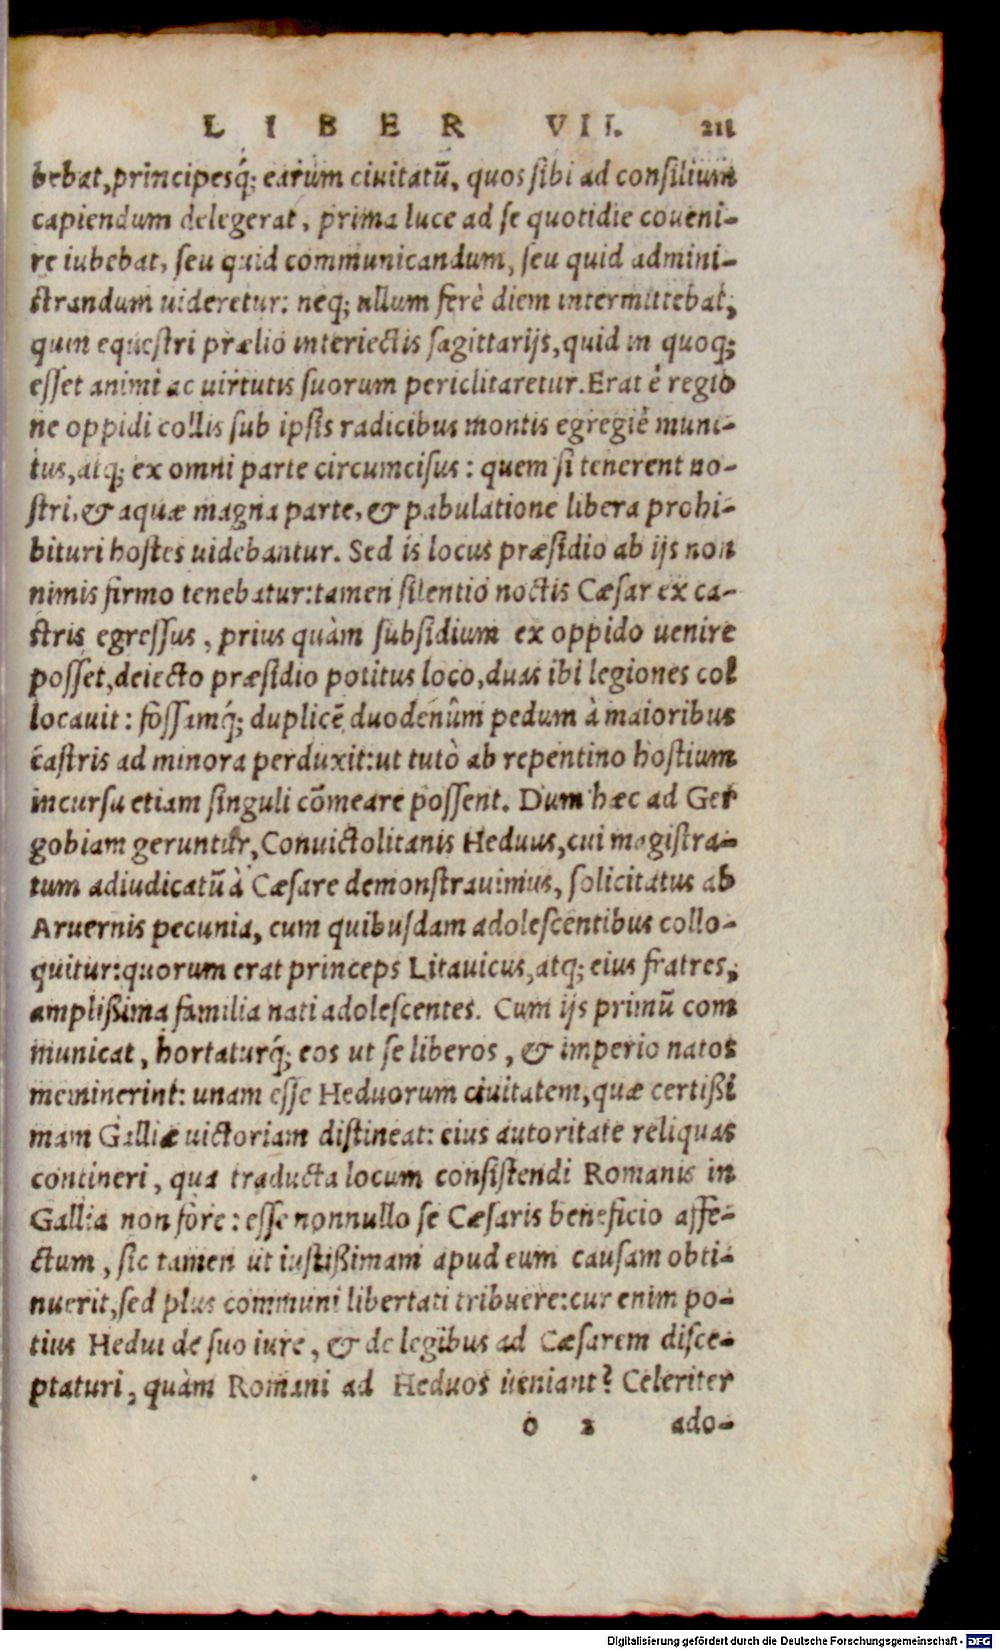 LIBER VII. 211
bebat, principesq́; earum ciuitatū, quos sibi ad consilium
capiendum delegerat, prima luce ad se quotidie coueni-
re iubebat, seu quid communicandum, seu quid admini-
strandum uideretur: neq; ullum ferè diem intermittebat,
quin equestri prælio interiectis sagittarijs, quid in quoq;
esset animi ac uirtutis suorum periclitaretur. Erat è regio
ne oppidi collis sub ipsis radicibus montis egregiè muni-
tus, atq; ex omni parte circumcisus: quem si tenerent no-
stri, & aquæ magna parte, & pabulatione libera prohi-
bituri hostes uidebantur. Sed is locus præsidio ab ijs non
nimis firmo tenebatur: tamen silentio noctis Cæsar ex ca-
stris egressus, prius quàm subsidium ex oppido uenire
posset, deiecto præsidio potitus loco, duas ibi legiones col
locauit: fossamq́; duplicē duodenûm pedum à maioribus
castris ad minora perduxit: ut tutò ab repentino hostium
incursu etiam singuli cōmeare possent. Dum hæc ad Ger
gobiam geruntur, Conuictolitanis Heduus, cui magistra-
tum adiudicatū à Cæsare demonstrauimus, solicitatus ab
Aruernis pecunia, cum quibusdam adolescentibus collo-
quitur: quorum erat princeps Litauicus, atq; eius fratres,
amplißima familia nati adolescentes. Cum ijs primū com
municat, hortaturq́; eos ut se liberos, & imperio natos
meminerint: unam esse Heduorum ciuitatem, quæ certißi
mam Galliæ uictoriam distineat: eius autoritate reliquas
contineri, qua traducta locum consistendi Romanis in
Gallia non fore: esse nonnullo se Cæsaris beneficio affe-
ctum, sic tamen ut iustißimam apud eum causam obti-
nuerit, sed plus communi libertati tribuere: cur enim po-
tius Hedui de suo iure, & de legibus ad Cæsarem disce-
ptaturi, quàm Romani ad Heduos ueniant? Celeriter
o 2 ado-
Digitalisierung gefördert durch die Deutsche Forschungsgemeinschaft - DFG